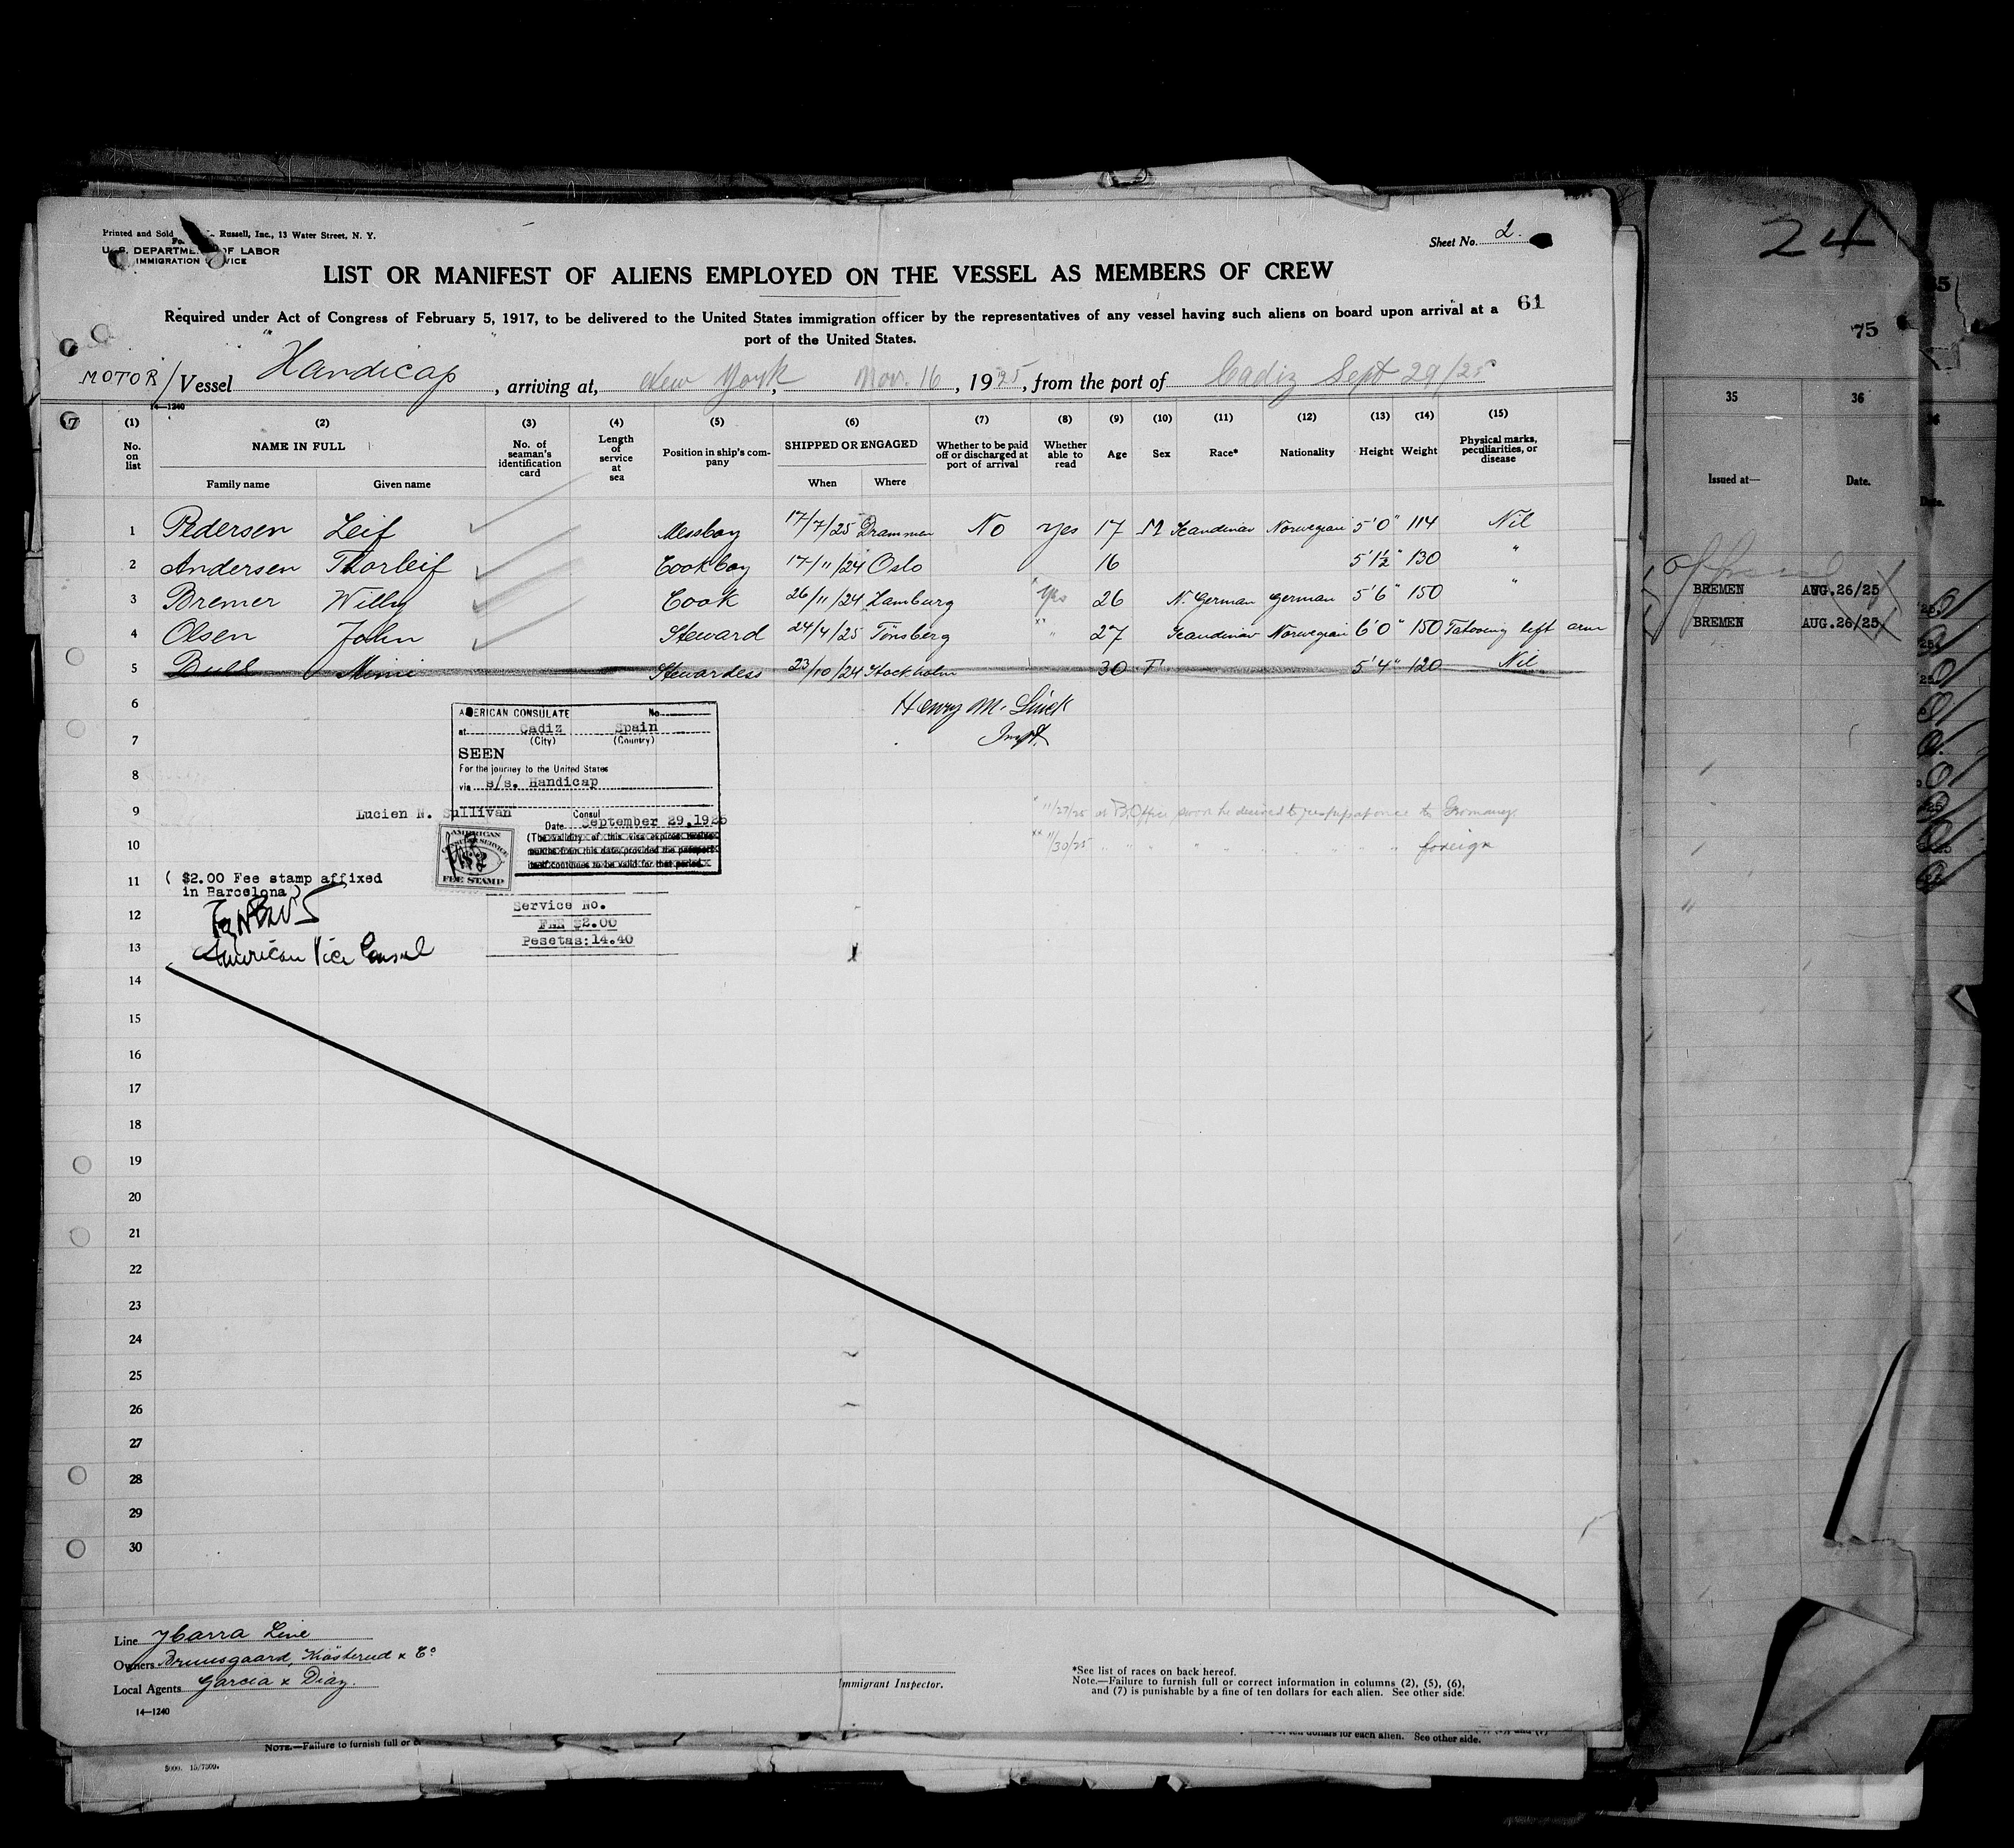 Printed and Sold Russell, Inc., 13 Water Street, N. Y.
U. S. DEPARTMENT OF LABOR
IMMIGRATION SERVICE
Sheet No. 2.
LIST OR MANIFEST OF ALIENS EMPLOYED ON THE VESSEL AS MEMBERS OF CREW
61
Required under Act of Congress of February 5, 1917, to be delivered to the United States immigration officer by the representatives of any vessel having such aliens on board upon arrival at a
port of the United States.
MOTOR/Vessel "Handicap", arriving at, New York, Nov. 16, 1925, from the port of Cadiz Sept 29/25
14—1240
(1) (2) (3) (4) (5) (6) (7) (8) (9) (10) (11) (12) (13) (14) (15)
No. on list NAME IN FULL Family name Given name No. of seaman's identification card Length of service at sea Position in ship's company SHIPPED OR ENGAGED When Where Whether to be paid off or discharged at port of arrival Whether able to read Age Sex Race* Nationality Height Weight Physical marks, peculiarities, or disease
1 Pedersen Leif Messboy 17/7/25 Drammen No Yes 17 M Scandinav Norwegian 5'0" 114 Nil
2 Andersen Thorleif Cookboy 17/11/24 Oslo 16 5'1½" 130 "
3 Bremer Willy Cook 26/11/24 Hamburg * Yes 26 N. German German 5'6" 150 "
4 Olsen John Steward 24/4/25 Tönsberg ** " 27 Scandinav Norwegian 6'0" 150 Tatooing left arm
5 Bull Mimi Stewardess 23/10/24 Stockholm 30 F 5'4" 120 Nil
6
Henry M.
7
Insp.
8
9
10
11
12
13
14
15
16
17
18
19
20
21
22
23
24
25
26
27
28
29
30
AMERICAN CONSULATE No.
at Cadiz Spain
(City) (Country)
SEEN
For the journey to the United States
via s/s. Handicap
Lucien N. Sullivan Consul
Date September 29, 1925
(The validity of this visa expires twelve
months from this date, provided the passport
itself continues to be valid for that period.
AMERICAN
CONSULAR SERVICE
$2
FEE STAMP
* 11/27/25 at B. Office swore he desired to reship at once to Germany.
** 11/30/25 " " " " " " " " foreign
( $2.00 Fee stamp affixed
in Barcelona)
American Vice Consul
Service No.
FEE $2.00
Pesetas:14.40
Line Ybarra Line
Owners Bruusgaard, Kiösterud & Co
Local Agents Garcia & Diaz.
14—1240
Immigrant Inspector.
*See list of races on back hereof.
Note.—Failure to furnish full or correct information in columns (2), (5), (6),
and (7) is punishable by a fine of ten dollars for each alien. See other side.
NOTE.—Failure to furnish full or
ten dollars for each alien. See other side.
24
75
35 36
Issued at— Date.
BREMEN AUG.26/25
BREMEN AUG.26/25